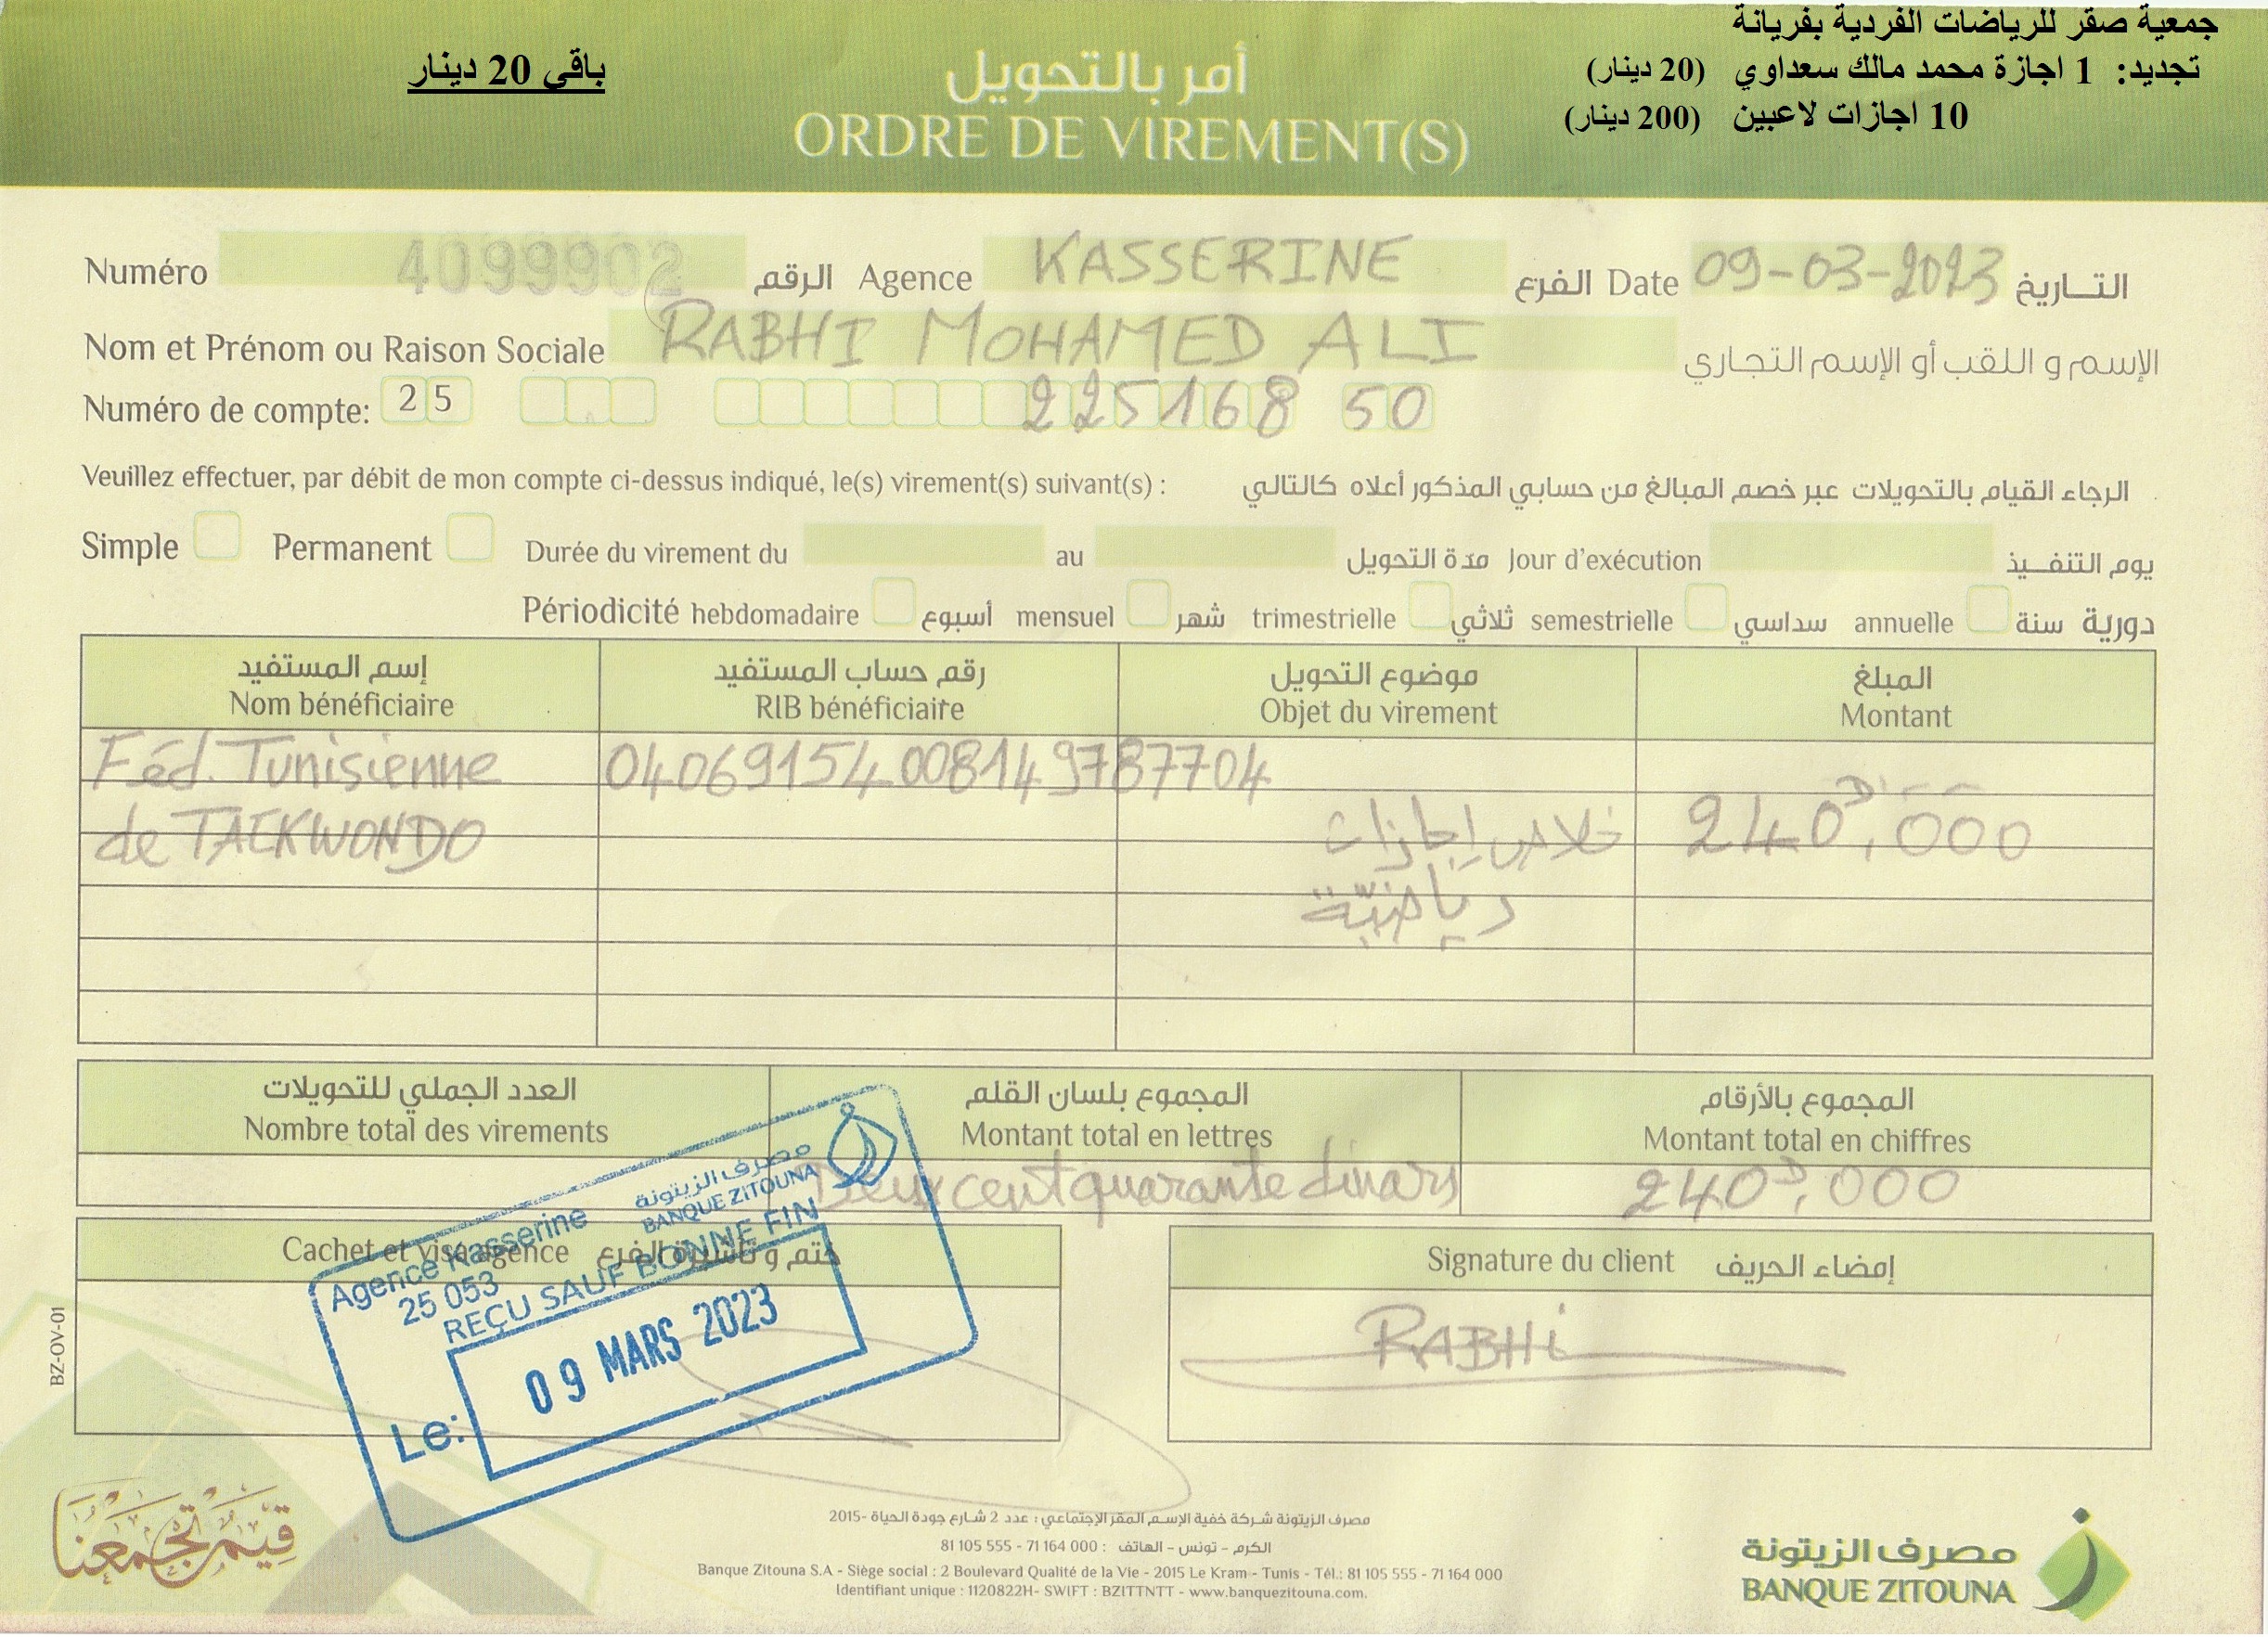 جمعية صقر للرياضات الفردية بفريانة
تجديد: 1 اجازة محمد مالك سعداوي (20 دينار)
10 اجازات لاعبين (200 دينار)
باقي 20 دينار
أمر بالتحويل
ORDRE DE VIREMENT(S)
Numéro 4099902 الرقم Agence KASSERINE الفرع Date 09-03-2023 التاريخ
Nom et Prénom ou Raison Sociale RABHI MOHAMED ALI الإسم و اللقب أو الإسم التجاري
Numéro de compte: 25 225168 50
Veuillez effectuer, par débit de mon compte ci-dessus indiqué, le(s) virement(s) suivant(s) : الرجاء القيام بالتحويلات عبر خصم المبالغ من حسابي المذكور أعلاه كالتالي
Simple Permanent Durée du virement du au مدة التحويل Jour d'exécution يوم التنفيذ
Périodicité hebdomadaire أسبوع mensuel شهر trimestrielle ثلاثي semestrielle سداسي annuelle سنة دورية
إسم المستفيد رقم حساب المستفيد موضوع التحويل المبلغ
Nom bénéficiaire RIB bénéficiaire Objet du virement Montant
Féd. Tunisienne 04069154008149787704
de TAEKWONDO خلاص إجازات 240D,000
رياضيّة
العدد الجملي للتحويلات المجموع بلسان القلم المجموع بالأرقام
Nombre total des virements Montant total en lettres Montant total en chiffres
Deux cent quarante dinars 240D,000
Cachet et visa agence ختم و تأشيرة الفرع Signature du client إمضاء الحريف
مصرف الزيتونة
BANQUE ZITOUNA
Agence Kasserine
25 053
REÇU SAUF BONNE FIN
Le: 09 MARS 2023
RABHI
BZ-OV-01
قيم تجمعنا
مصرف الزيتونة شركة خفية الإسم المقر الإجتماعي : عدد 2 شارع جودة الحياة -2015
الكرم - تونس - الهاتف : 000 164 71 - 555 105 81
Banque Zitouna S.A - Siège social : 2 Boulevard Qualité de la Vie - 2015 Le Kram - Tunis - Tél.: 81 105 555 - 71 164 000
Identifiant unique : 1120822H- SWIFT : BZITTNTT - www.banquezitouna.com.
مصرف الزيتونة
BANQUE ZITOUNA